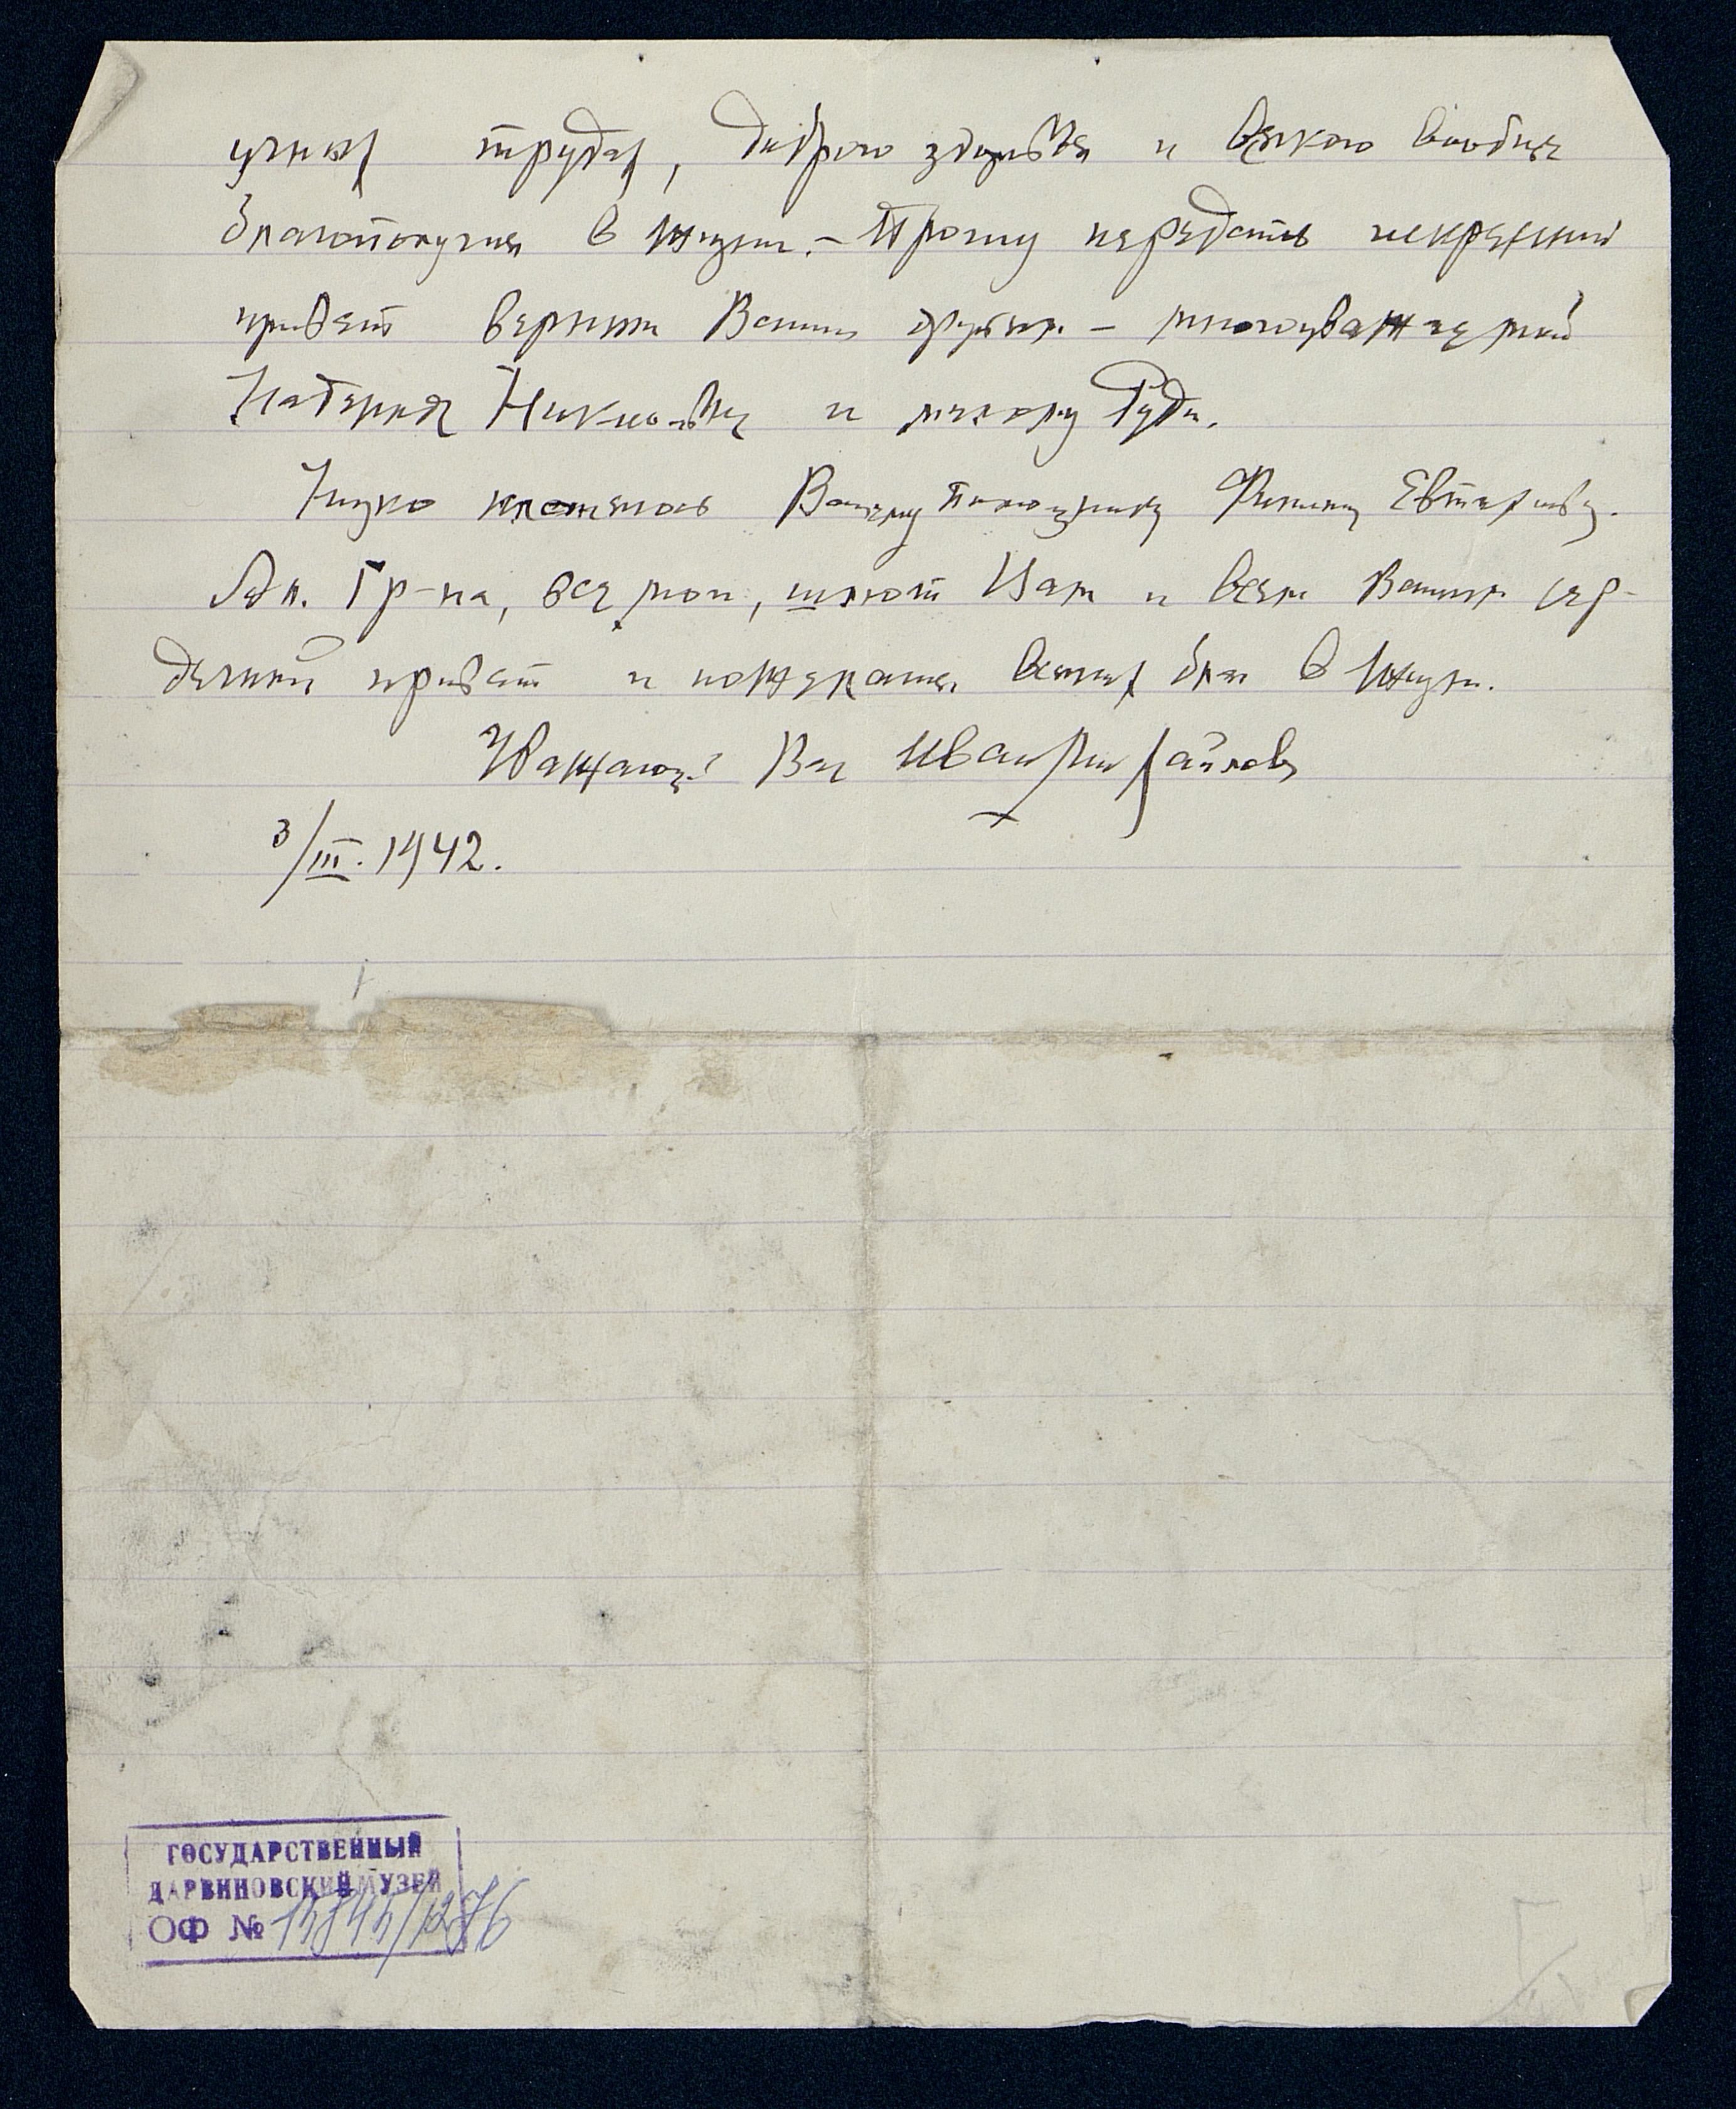 ученых трудах, доброго здоровья и всякого вообще
благополучия в жизни. – Прошу передать искренний
привет верным Вашим друзьям – многоуважаемой
Надежде Николаевне и милому Руди.
Низко кланяюсь Вашему помощнику Филиппу Евтихиевичу.
Ал. Гр-на, все мои, шлют Вам и всем Вашим сер-
дечный привет и пожелания всяких благ в жизни.
Уважающий Вас Иван
3/III. 1942.
ГОСУДАРСТВЕННЫЙ
ДАРВИНОВСКИЙ МУЗЕЙ
ОФ №